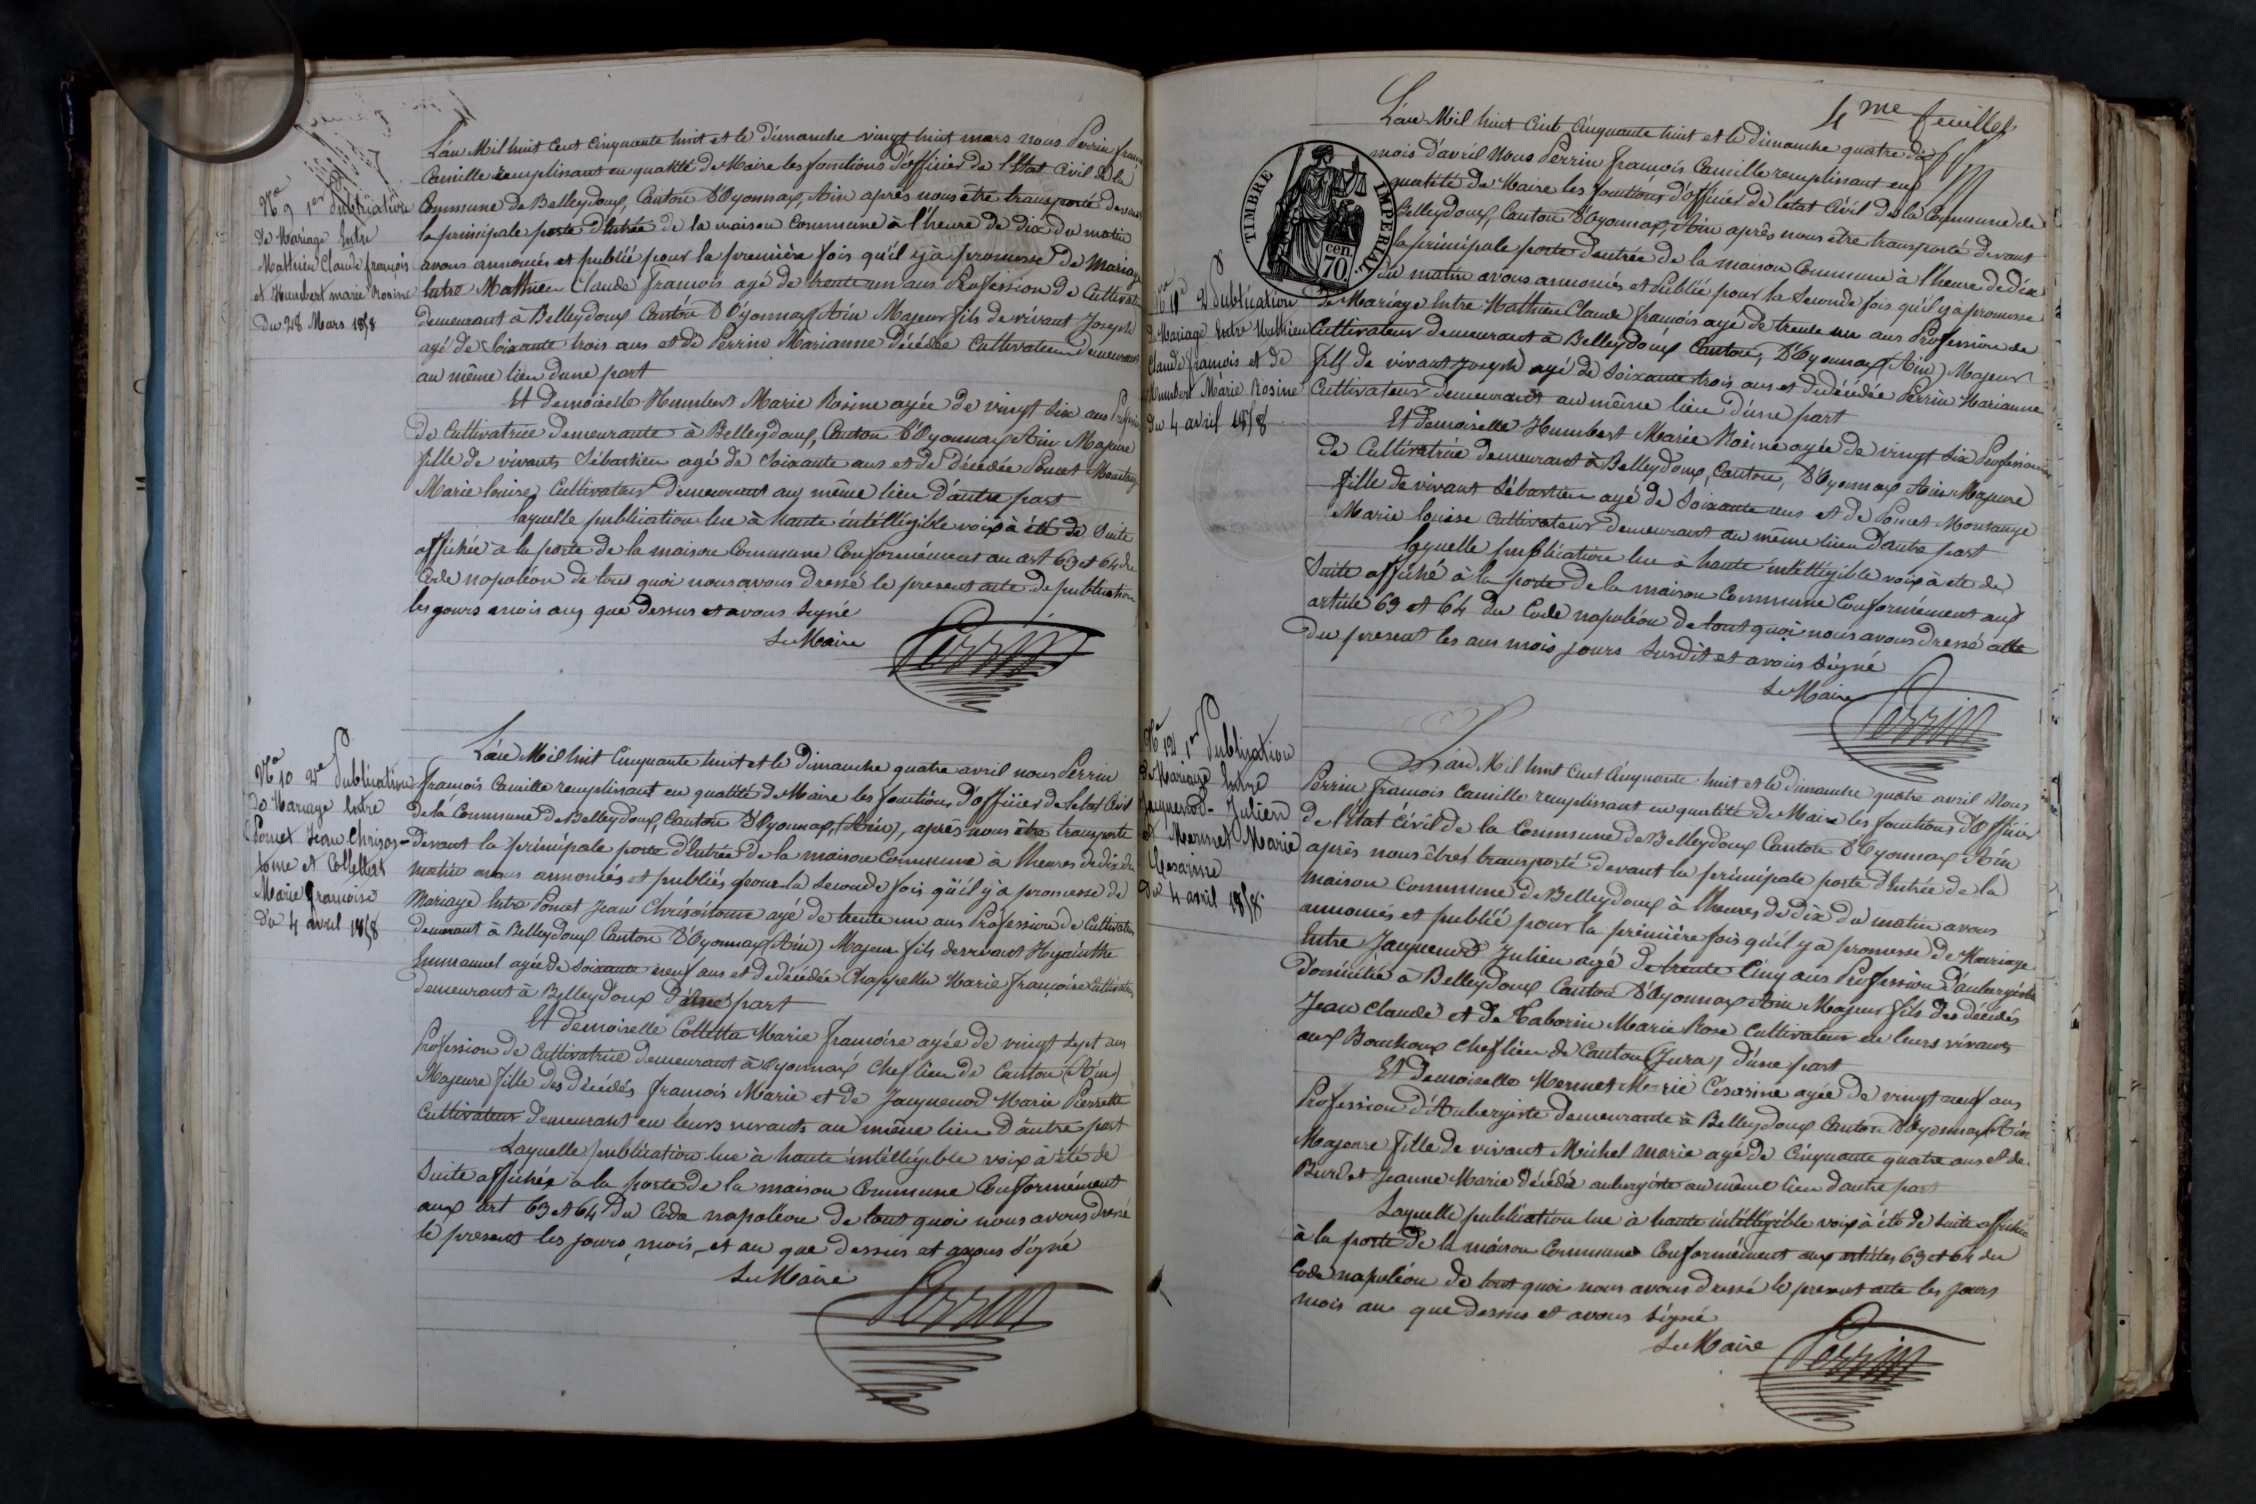 L'an Mil huit Cent Cinquante huit et le dimanche vingt huit mars nous Perrin
Camille remplissant en qualité de Maire les fonctions d'officier de l'Etat Civil de la
Commune de Belleydoux, Canton D'Oyonnax, Ain après nous être transporté devant
la principale porte d'entrée de la maison Commune à l'heure de dix du matin
avons annoncés et publié pour la première fois qu'il y à promesse de Mariage
Entre Mathieu Claude François agé de trente un ans Profession de Cultivateur
demeurant à Belleydoux Canton D'Oyonnax Ain Majeur fils de vivant Joseph
agé de Soixante trois ans et de Perrin Marianne décédée Cultivateur demeurant
au même lieu dune part
Et demoiselle Humbert Marie Rosine agée de vingt six ans
de Cultivatrice demeurante à Belleydoux, Canton D'Oyonnax Ain Majeure
fille de vivants Sébastien agé de Soixante ans et de Décédée Poncet
Marie louise Cultivateur demeurant au même lieu d'autre part
laquelle publication lue à haute intélligible voix à été de Suite
affichée à la porte de la maison Commune Conformément au art 63 et 64 du
Code napoléon de tout quoi nous avons dressé le present acte de publication
les gours mois an que dessus et avons signé
Le Maire
Perrin
No 9 1er Publication
de Mariage Entre
Mathieu Claude françois
et Humbert marie Rosine
Du 28 Mars 1858
No 10 2e Publication
de Mariage Entre
Poncet Jean Chrisos-
tome et Collettet
Marie françoise
du 4 avril 1858
L'an Mil huit Cinquante huit et le Dimanche quatre avril nous Perrin
François Camille remplissant en qualité de Maire les fonctions d'officier de l'etat Civil
de la Commune de Belleydoux, Canton D'Oyonnax, (Ain), après nous être transporté
devant la principale porte d'Entrée de la maison Commune à l'heures de dix du
matin avons annoncés et publiés pour la seconde fois qu'il y'à promesse de
Mariage Entre Poncet Jean Chrisostome agé de trente un ans Profession de Cultivateur
demeurant à Belleydoux Canton D'Oyonnax (Ain) Majeur fils de vivant Hyacinthe
Emmanuel agée de Soixante neuf ans et de décédée Chappellu Marie françoise
demeurant à Belleydoux D'une part
Et demoiselle Colletta Marie françoise agée de vingt sept ans
Profession de Cultivatrice demeurant à Oyonnax Chef lieu de Canton (Ain)
Majeure fille des décédés françois Marie et de Jacquenod Marie Pierrette
Cultivateur demeurant en leurs vivants au même lieu D'autre part
Laquelle publication lue à haute intélligible voix à été de
Suite affichée à la porte de la maison Commune Conformément
aux art 63 et 64 du Code napoléon de tout quoi nous avons dressé
le present les jours, mois, et an que dessus et avons signé
Le Maire
Perrin
4me feuillet
TIMBRE IMPERIAL
70 cen.
L'an Mil huit Cent Cinquante huit et le dimanche quatre du
mois d'avril Nous Perrin François Camille remplissant en
qualité de Maire les fonctions d'officier de l'etat Civil de la Commune de
Belleydoux, Canton D'Oyonnax, Ain après nous être transporté devant
la principale porte d'entrée de la maison Commune à l'heure de dix
du matin avons annoncés et Publié pour la seconde fois qu'il y à promesse
de Mariage Entre Mathieu Claude François agé de trente un ans Profession de
Cultivateur demeurant à Belleydoux Canton, D'Oyonnax (Ain) Majeur
fils de vivant Joseph agé de soixante trois ans et de décédée Perrin Marianne
Cultivateur demeurant au même lieu d'une part
Et demoiselle Humbert Marie Rosine agée de vingt six Profession
de Cultivatrice demeurant à Belleydoux, Canton, D'Oyonnax Ain Majeure
fille de vivant Sébastien agé de Soixante ans et de Poncet
Marie louise Cultivateur demeurant au même lieu d'autre part
Laquelle publication lue à haute intélligible voix à été de
Suite affiché à la porte de la maison Commune Conformément aux
article 63 et 64 du Code napoléon de tout quoi nous avons dressé acte
du present les ans mois jours susdit et avons signé
Le Maire
Perrin
No 11 2e Publication
de Mariage Entre Mathieu
Claude françois et de
Humbert Marie Rosine
du 4 avril 1858
No 12 1er Publication
de Mariage Entre
Jacquenod Julien
et Mermet Marie
Cesarine
Du 4 avril 1858
L'an Mil huit Cent Cinquante huit et le dimanche quatre avril Nous
Perrin François Camille remplissant en qualité de Maire les fonctions D'officier
de l'Etat Civil de la Commune de Belleydoux Canton D'Oyonnax Ain
après nous êtres transporté devant la principale porte d'Entrée de la
maison Commune de Belleydoux à l'heures de dix du matin avons
annoncés et publié pour la première fois qu'il y a promesse de Mariage
Entre Jacquenod Julien agé de trente Cinq ans Profession d'aubergiste
domicilié à Belleydoux Canton D'Oyonnax Ain Majeur fils des décédés
Jean Claude et de Taborin Marie Rose Cultivateur en leurs vivants
aux Bouchoux chef lieu de Canton (Jura) d'une part
Et demoiselle Mermet Marie Césarine agée de vingt neuf ans
Profession d'Aubergiste demeurante à Belleydoux Canton D'Oyonnax Ain
Majeure fille de vivant Michel Marie agé de Cinquante quatre ans et de
Burdet Jeanne Marie décédée aubergiste au même lieu d'autre part
Laquelle publication lue à haute intélligible voix à été de suite affichée
à la porte de la maison Commune Conformément aux articles 63 et 64 du
Code napoléon de tout quoi nous avons dressé le present acte les jours
mois an que dessus et avons signé
Le Maire
Perrin